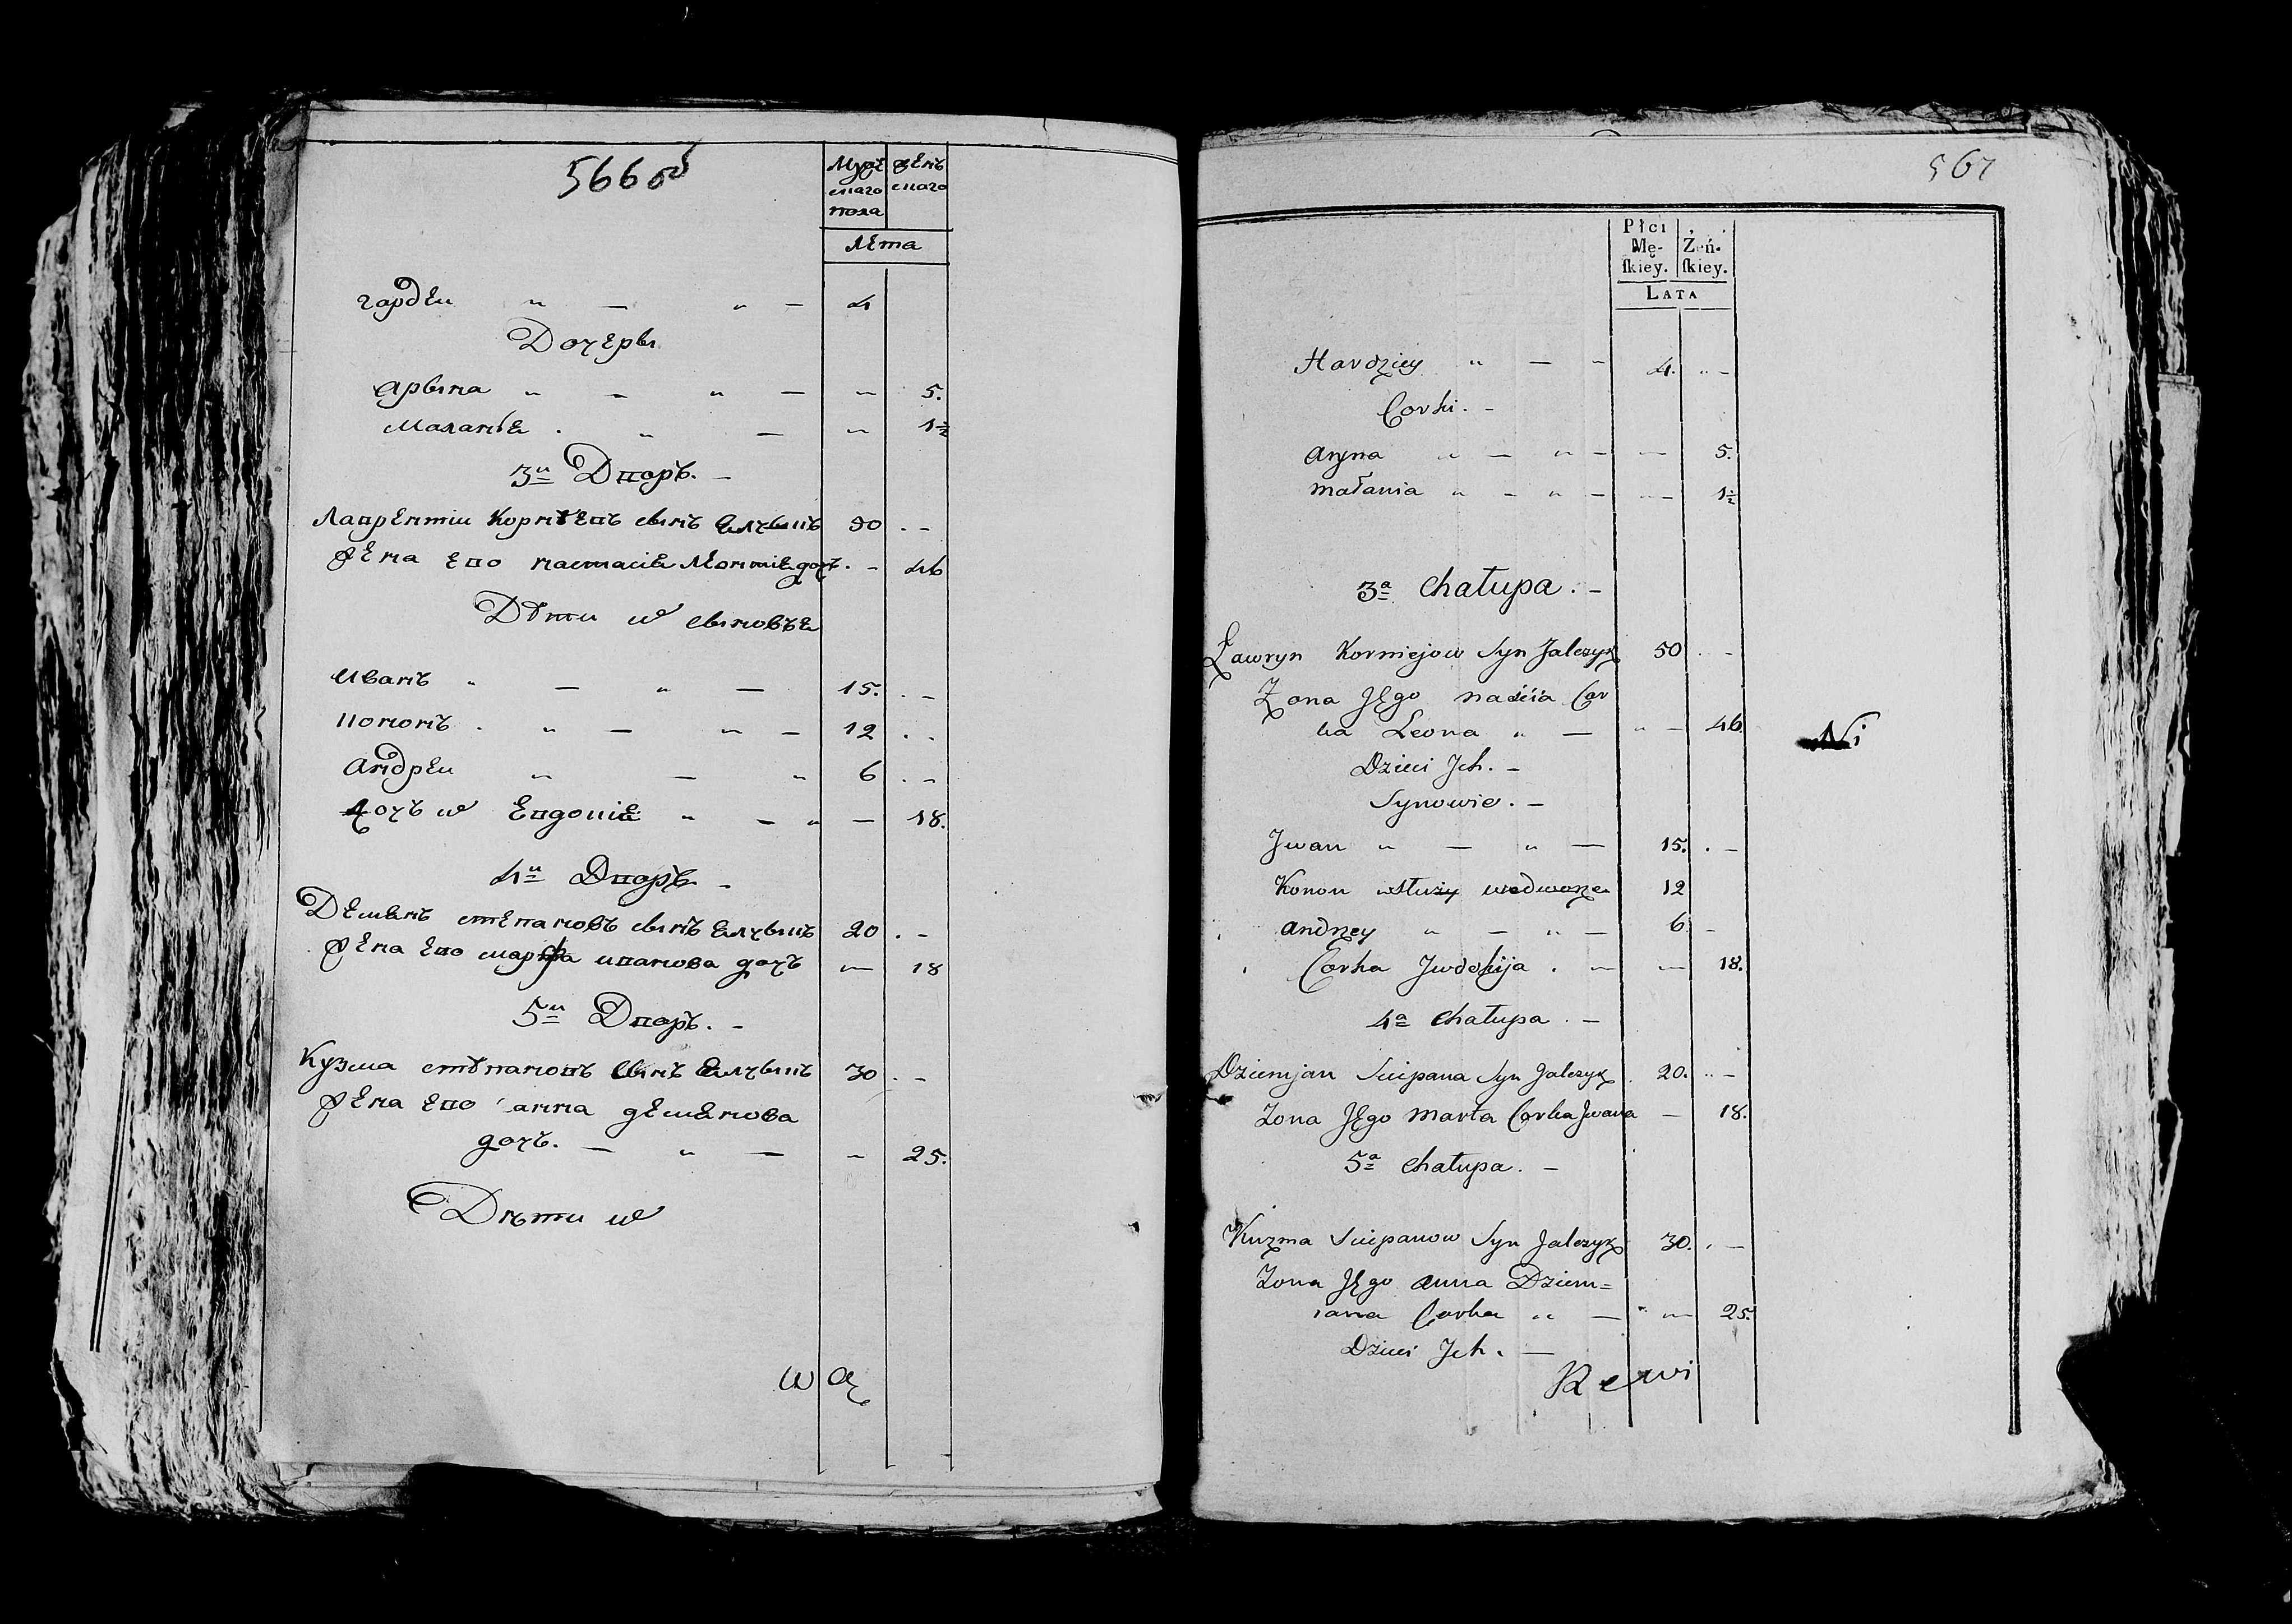 566 об
Муже женъ
скаго скаго
пола
Лета
гардеи " — " — 4
Дочеры
Арына " — " — " 5.
Маланья . " — " 1½
3и Дворъ. —
Лаврентіи Корнѣевъ сынъ Елчыцъ 50 . —
жена его настасіа Леонтіа дочъ. — 46
Дѣти ихъ сыновъя
Иванъ " — " — 15. . —
Кононъ . " — " — 12 . .
Андреи " — " 6 . —
Дочъ ихъ Евдокиіа " — " — 18.
4и Дворъ —
Демянъ степановъ сынъ Елчыцъ 20 . —
жена его марфа иванова дочъ — 18
5и Дворъ. —
Кузма стѣпановъ сынъ Елчыцъ 30 . —
жена его анна демянова
дочъ. — " — " 25.
Дѣти ихъ
567
Płci
Mę- Żeń-
ſkiey. ſkiey.
LATA
Hardziey " — " 4. " —
Corki. —
Aryna " — " — — 5.
Małania " — " — " — 1½
3a Chałupa. —
Ławryn Korniejow Syn Jalczyk 50 . —
Zona Jego naścia Cor
ka Leona " — " — 46.
Ni
Dzieci Jch. —
Synowie. —
Jwan " — " — 15. . —
Konon wsłuży wedworze 12
Andrzey " — " — 6 —
Corka Jwdokija . — — 18.
4a Chałupa . —
Dziemjan Sciepana Syn Jalczyk . 20. " —
Zona Jego Marta Corka Jwana — 18.
5a Chałupa. —
Kuzma Sciepanow Syn Jalczyk 30. . —
Zona Jego Anna Dziem=
iana Corka " — " — 25.
Dzieci Jch. —
Rewi